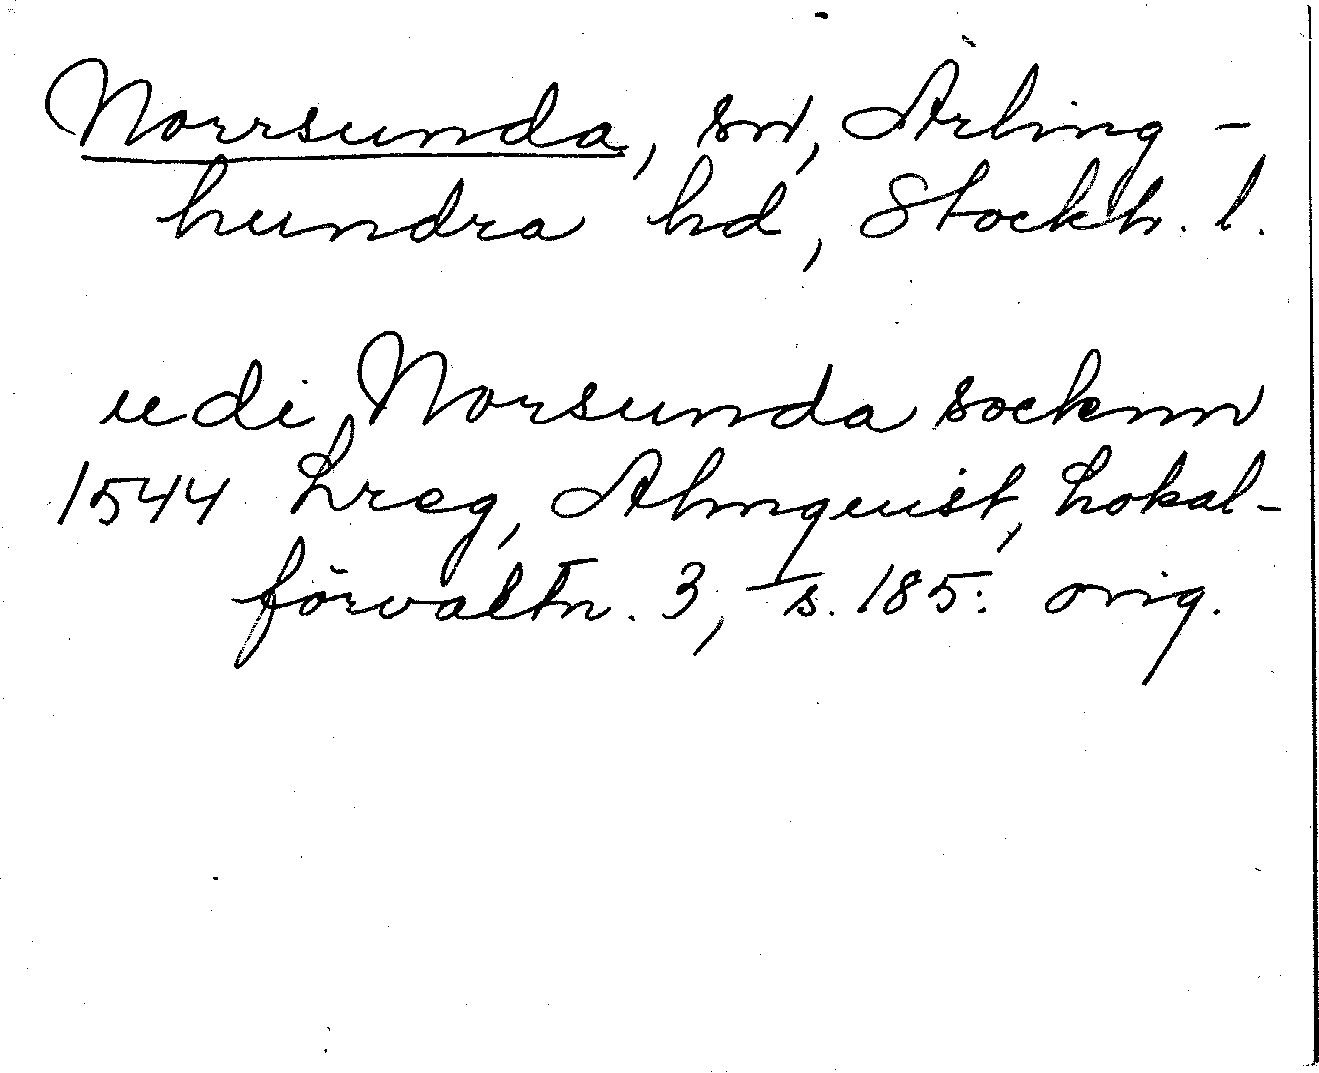 Norrsunda, sn, Ärling-
hundra hd, Stockh. l.
udi Norsunda socknn
1544 Lreg, Almquist, Lokal-
förvaltn. 3, s. 185. orig.